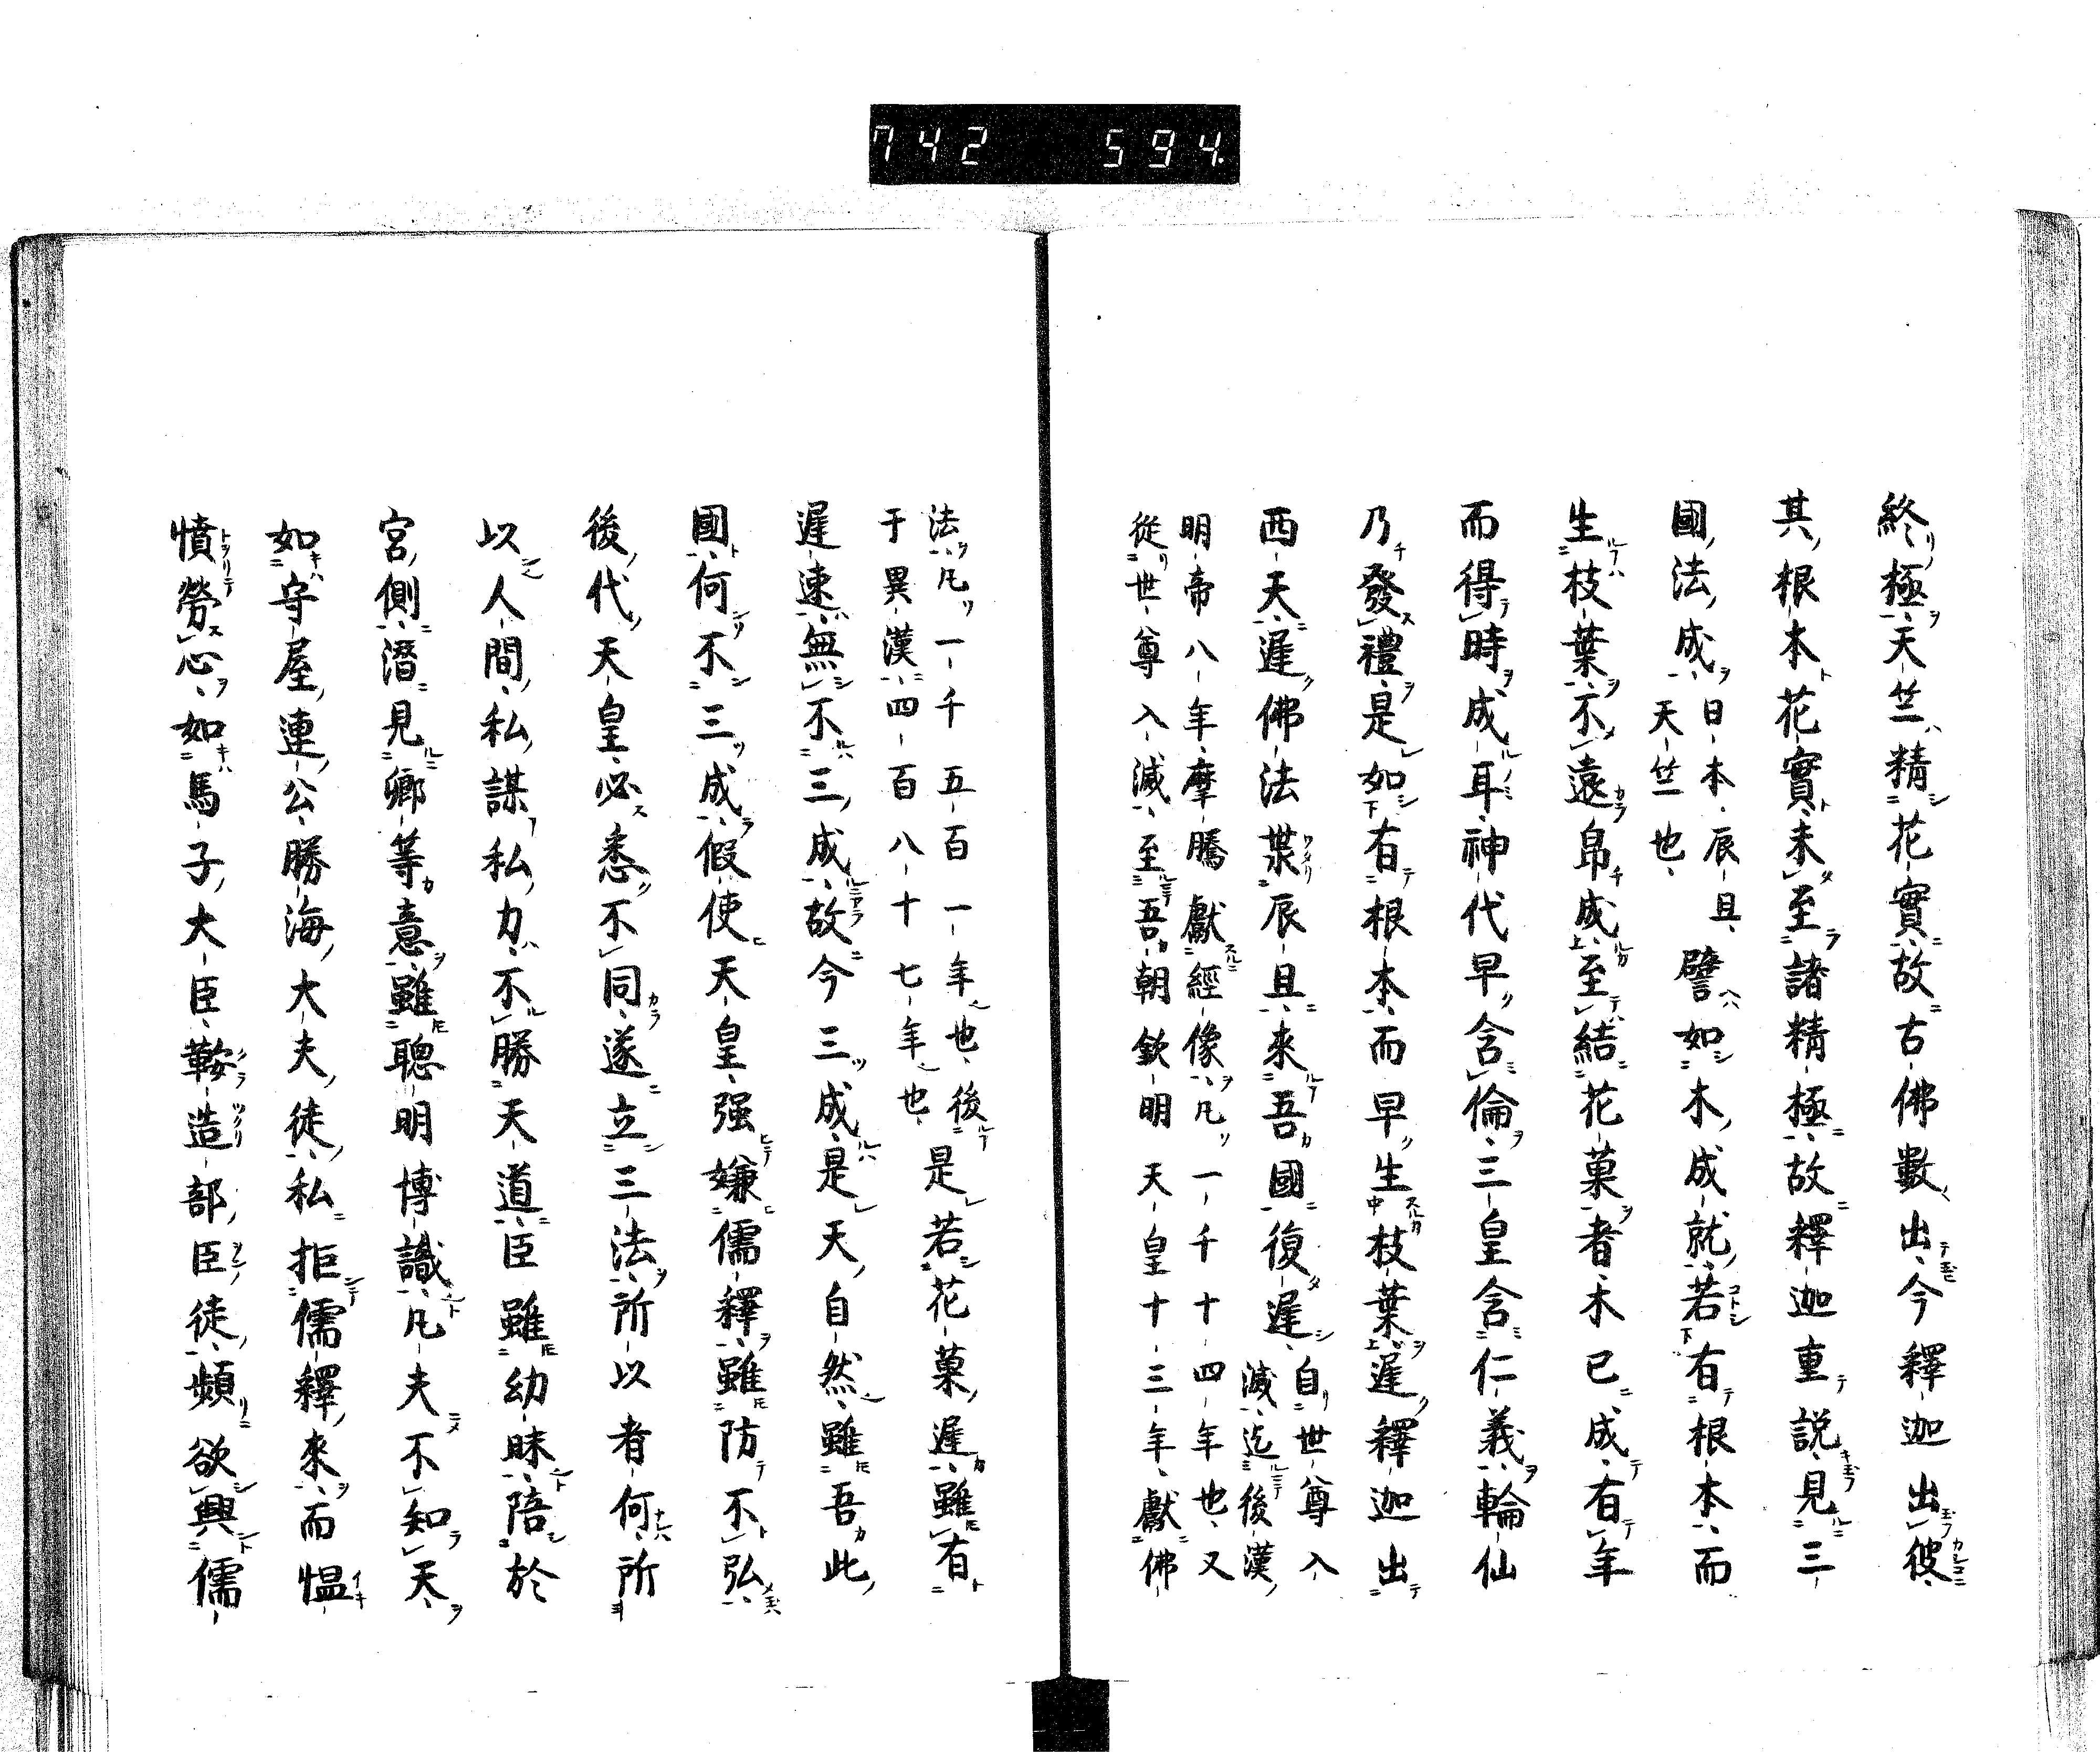 742 594.
終極天竺精花實故古佛數出今釋迦出彼
其根本花實未至諸精極故釋迦重説見三
國法成日本辰旦
天竺也
譬如木成就若有根本而
生枝葉不遠帛成至結花菓者木已成有年
而得時成耳神代早含倫三皇含仁義輪仙
乃發禮是如有根本而早生枝葉遲釋迦出
西天遲佛法辰旦來吾國復遲自世尊入
滅迄後漢
明帝八年摩騰獻經像凡一千十四年也又
從世尊入滅至吾朝欽明天皇十三年獻佛
法凡一千五百一年也後
于異漢四百八十七年也
是若花菓遲雖有
遲速無不三成故今三成是天自然雖吾此
國何不三成假使天皇强嫌儒釋雖防不弘
後代天皇必悉不同遂立三法所以者何所
以人間私謀私力不勝天道臣雖幼昧陪於
宮側潛見卿等意雖聰明博識凡夫不知天
如守屋連公勝海大夫徒私拒儒釋來而愠
憤勞心如馬子大臣鞍造部臣徒頻欲興儒